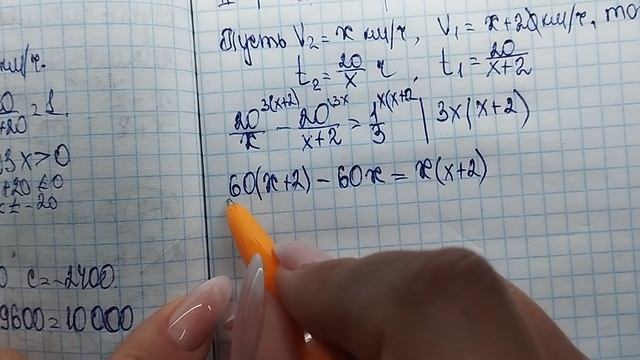 км/ч.
+20 = 1.
x > 0
+20 ≤ 0
x ≠ -20
c = -2400
9600 = 10000
Пусть V₂ = x км/ч, V₁ = x+2 км/ч, то
t₂ = 20/x ч, t₁ = 20/(x+2)
20/x ^3(x+2) - 20/(x+2) ^3x = 1/3 ^x(x+2 | 3x(x+2)
60(x+2) - 60x = x(x+2)